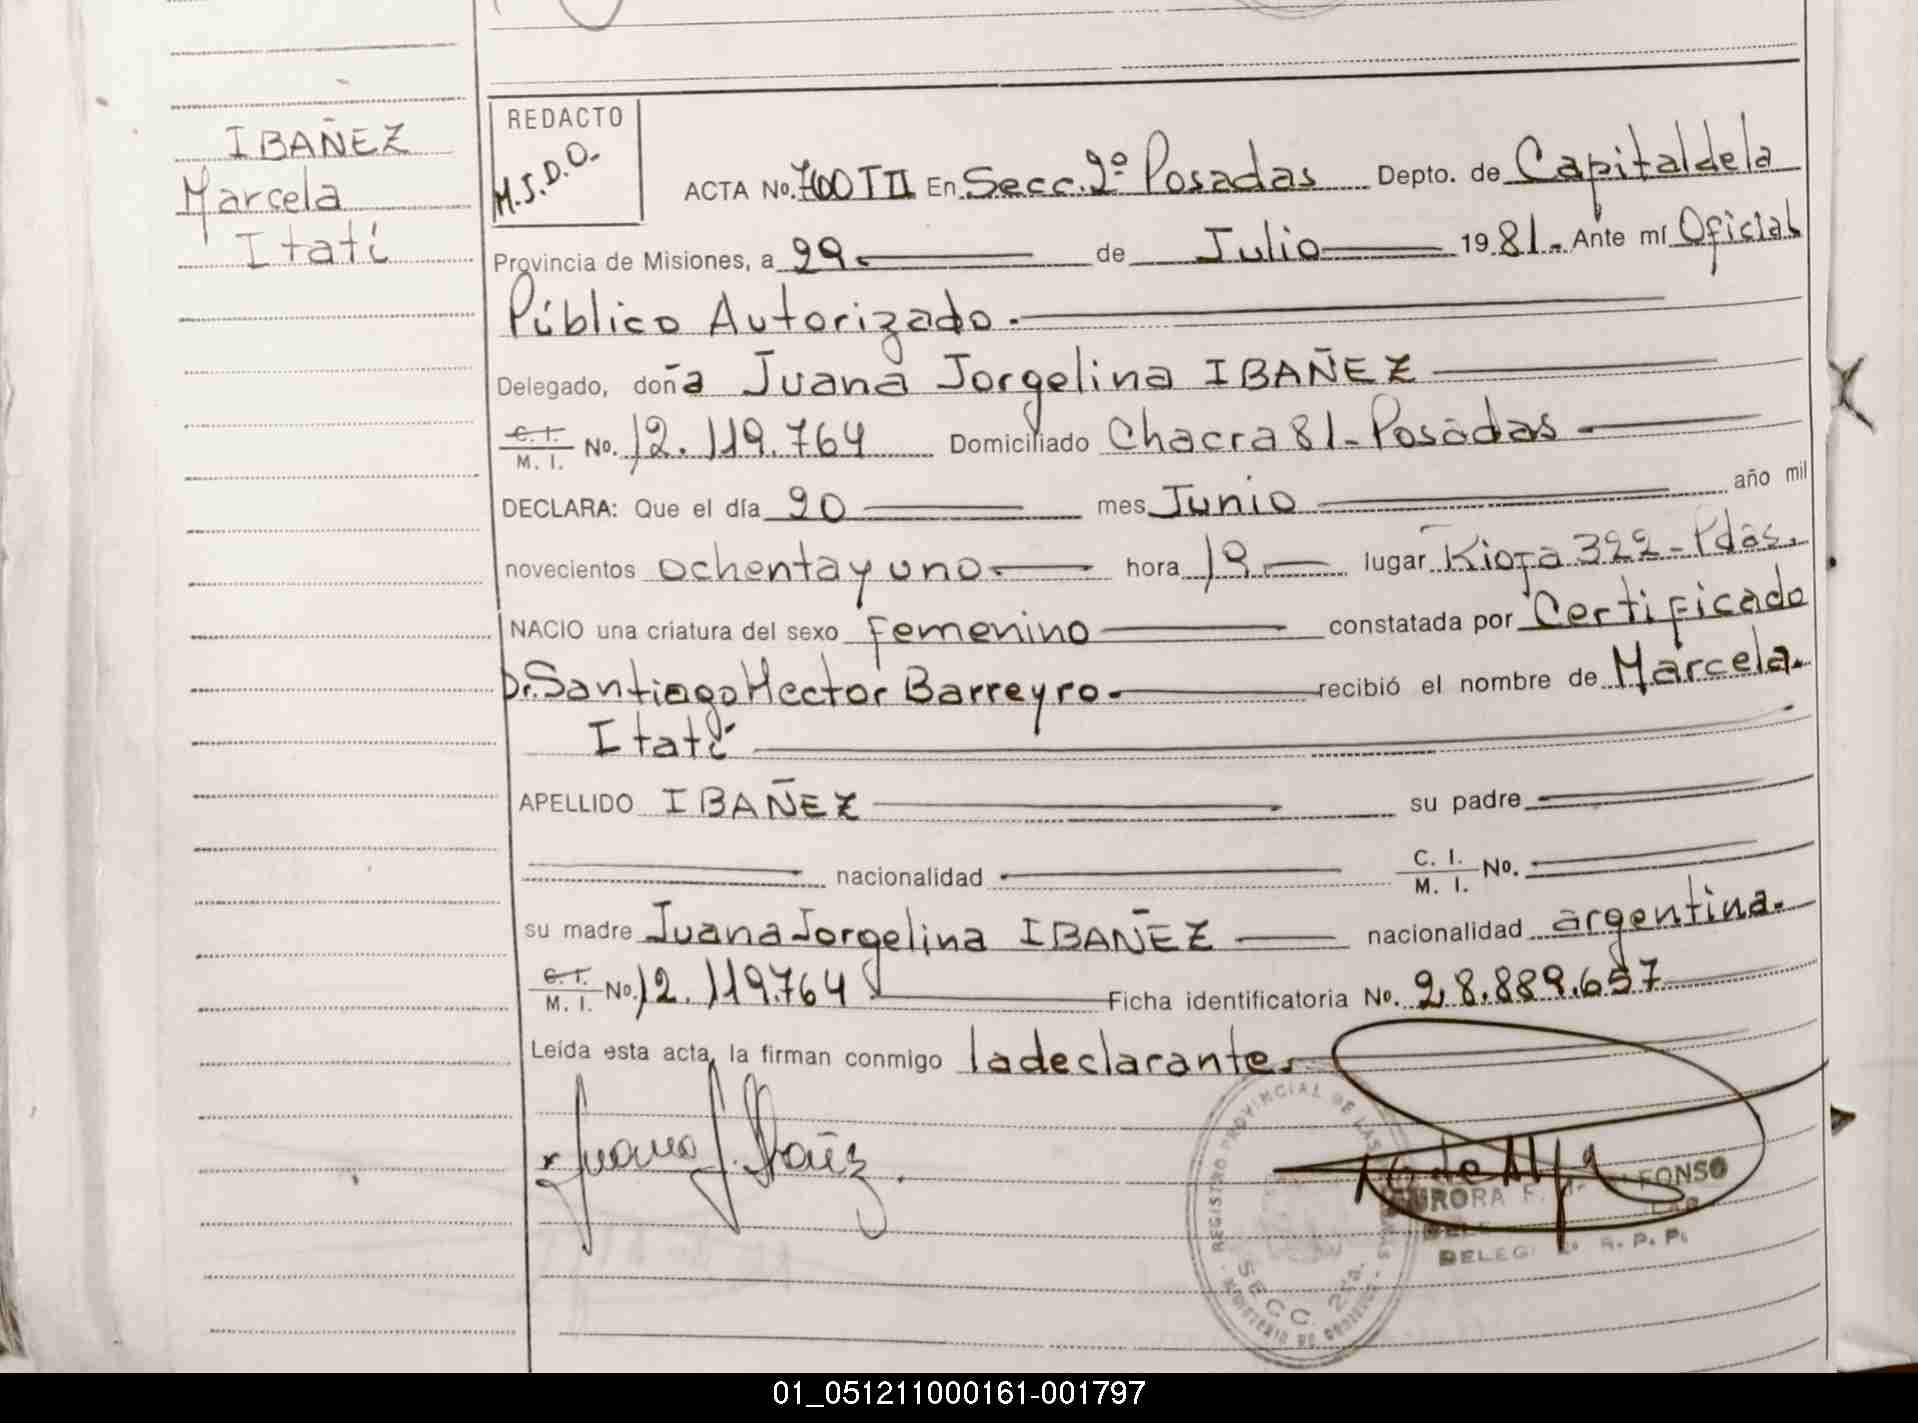 IBAÑEZ
Marcela
Itatí
REDACTO
M.S.D.O.
ACTA No. 700 T II En Secc. 2º Posadas Depto. de Capital de la
Provincia de Misiones, a 29 de Julio 1981.- Ante mí Oficial
Público Autorizado.-
Delegado, doña Juana Jorgelina IBAÑEZ
C. I. M. I. No. 12.119.764 Domiciliado Chacra 81 - Posadas -
DECLARA: Que el día 20 mes Junio año mil
novecientos ochenta y uno hora 19 lugar Rioja 322 - Pdas.
NACIO una criatura del sexo Femenino constatada por Certificado
Dr. Santiago Hector Barreyro.- recibió el nombre de Marcela.
Itatí
APELLIDO IBAÑEZ su padre
nacionalidad C. I. M. I. No.
su madre Juana Jorgelina IBAÑEZ nacionalidad argentina.-
C. I. M. I. No. 12.119.764 Ficha identificatoria No. 28.889.657
Leída esta acta, la firman conmigo la declarante.
Juana J. Ibañez.
REGISTRO PROVINCIAL DE LAS
SECC. 2da.
AURORA F. de ALFONSO
R. P. P.
01_051211000161-001797